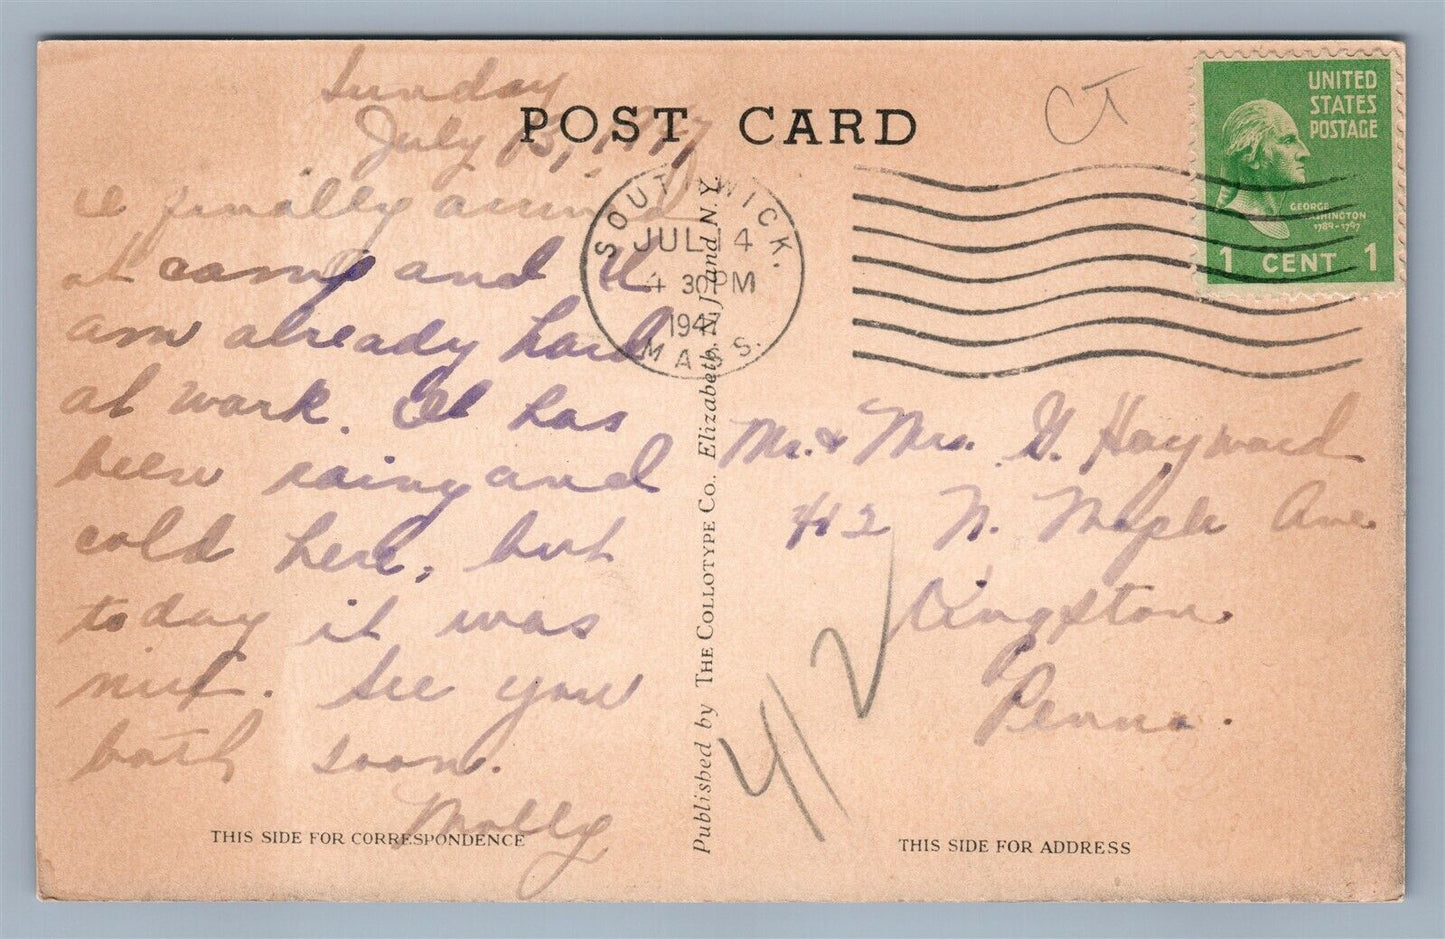 Sunday
July 13, 1947
finally arrived
at camp and
am already hard
at work. It has
been rainy and
cold here, but
today it was
nice. See you
both soon.
Molly
THIS SIDE FOR CORRESPONDENCE
POST CARD
Published by THE COLLOTYPE Co. Elizabeth, N.J. and N.Y.
SOUTHWICK.
JUL 14
4 30 PM
1947
MASS.
CT
UNITED
STATES
POSTAGE
GEORGE
WASHINGTON
1789-1797
1 CENT 1
Mr. & Mrs. G. Hayward
412 N. Maple Ave.
Kingston
Penna.
412
THIS SIDE FOR ADDRESS